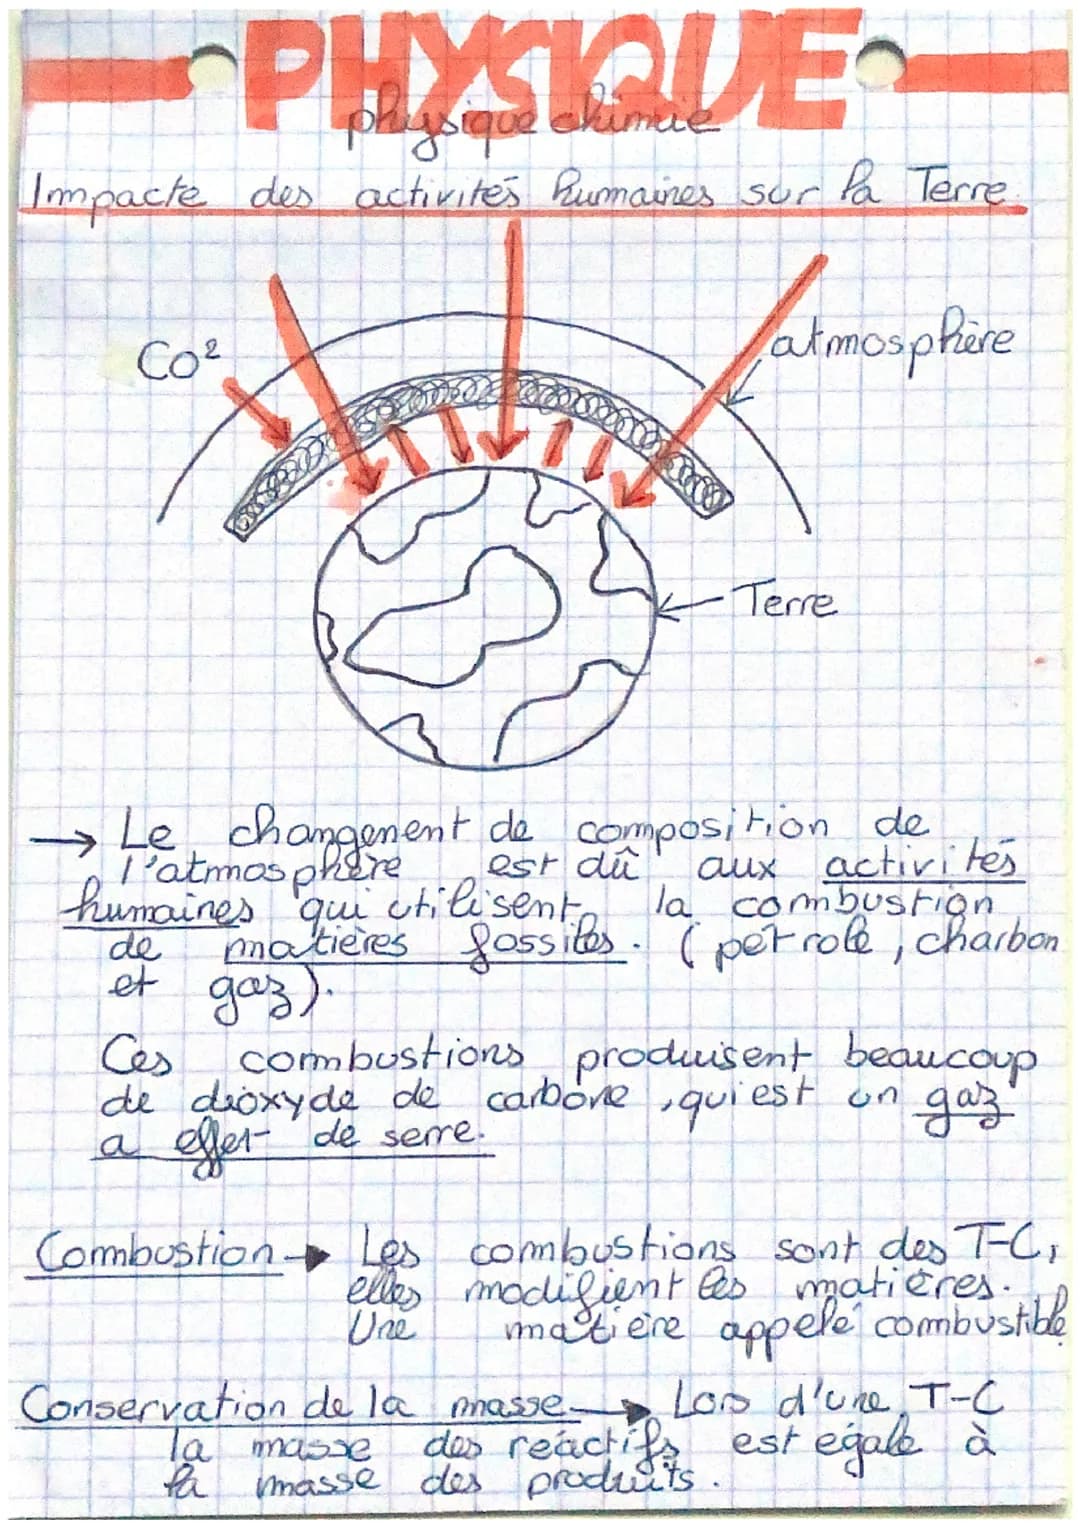 PHYSIQUE
physique chimie
Impacte des activités humaines sur la Terre.
Co²
atmosphère
Terre
→ Le changement de composition de
l'atmosphère est dû aux activités
humaines qui utilisent la combustion
de matières fossiles. (pétrole, charbon
et gaz).
Ces combustions produisent beaucoup
de dioxyde de carbone, qui est un gaz
a effet de serre.
Combustion → Les combustions sont des T-C,
elles modifient les matières.
Une matière appelé combustible
Conservation de la masse → Lors d'une T-C
la masse des réactifs est égale à
la masse des produits.